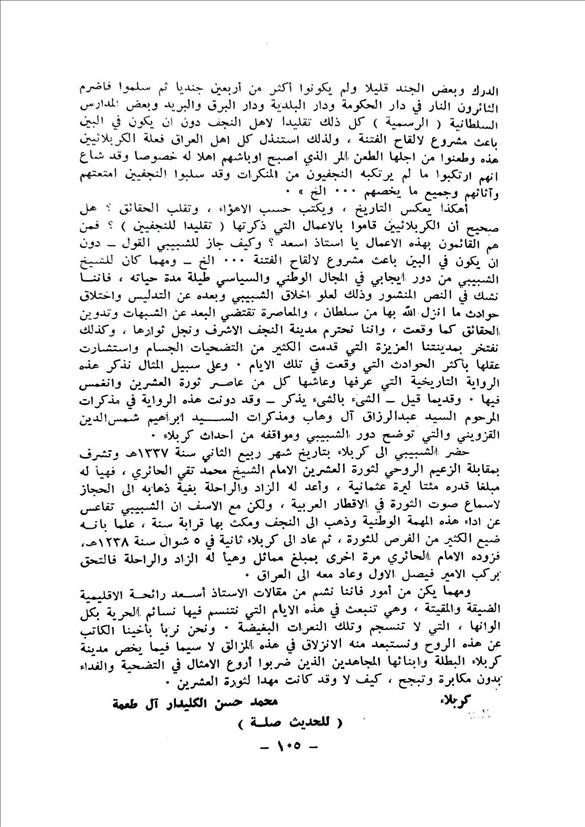 الدرك وبعض الجند قليلا ولم يكونوا أكثر من أربعين جنديا ثم سلموا فاضرم
الثائرون النار في دار الحكومة ودار البلدية ودار البرق والبريد وبعض المدارس
السلطانية ( الرسمية ) كل ذلك تقليدا لاهل النجف دون ان يكون في البين
باعث مشروع لالقاح الفتنة ، ولذلك استنذل كل اهل العراق فعلة الكربلائيين
هذه وطعنوا من اجلها الطعن المر الذي اصبح اوباشهم اهلا له خصوصا وقد شاع
انهم ارتكبوا ما لم يرتكبه النجفيون من المنكرات وقد سلبوا النجفيين امتعتهم
وآثائهم وجميع ما يخصهم ٠٠٠ الخ » ٠
أهكذا يعكس التاريخ ، ويكتب حسب الاهؤاء ، وتقلب الحقائق ؟ هل
صحيح أن الكربلائيين قاموا بالاعمال التي ذكرتها ( تقليدا للنجفيين ) ؟ فمن
هم القائمون بهذه الاعمال يا استاذ اسعد ؟ وكيف جاز للشبيبي القول ــ دون
ان يكون في البين باعث مشروع لالقاح الفتنة ٠٠٠ الخ ــ ومهما كان للشيخ
الشبيبي من دور ايجابي في المجال الوطني والسياسي طيلة مدة حياته ، فاننا
نشك في النص المنشور وذلك لعلو اخلاق الشبيبي وبعده عن التدليس واختلاق
حوادث ما انزل الله بها من سلطان ، والمعاصرة تقتضي البعد عن الشبهات وتدوين
الحقائق كما وقعت ، واننا نحترم مدينة النجف الاشرف ونجل ثوارها ، وكذلك
نفتخر بمدينتنا العزيزة التي قدمت الكثير من التضحيات الجسام واستشارت
عقلها بأكثر الحوادث التي وقعت في تلك الايام ٠ وعلى سبيل المثال نذكر هذه
الرواية التاريخية التي عرفها وعاشها كل من عاصر ثورة العشرين وانغمس
فيها ٠ وقديما قيل ــ الشيء بالشيء يذكر ــ وقد دونت هذه الرواية في مذكرات
المرحوم السيد عبدالرزاق آل وهاب ومذكرات السيد ابراهيم شمس الدين
القزويني والتي توضح دور الشبيبي ومواقفه من احداث كربلاء ٠
حضر الشبيبي الى كربلاء بتاريخ شهر ربيع الثاني سنة ١٣٣٧هـ وتشرف
بمقابلة الزعيم الروحي لثورة العشرين الامام الشيخ محمد تقي الحائري ، فهيأ له
مبلغا قدره مئتا ليرة عثمانية ، وأعد له الزاد والراحلة بغية ذهابه الى الحجاز
لاسماع صوت الثورة في الاقطار العربية ، ولكن مع الاسف ان الشبيبي تقاعس
عن اداء هذه المهمة الوطنية وذهب الى النجف ومكث بها قرابة سنة ، علما بانه
ضيع الكثير من الفرص للثورة ، ثم عاد الى كربلاء ثانية في ٥ شوال سنة ١٢٣٨هـ،
فزوده الامام الحائري مرة اخرى بمبلغ مماثل وهيأ له الزاد والراحلة فالتحق
بركب الامير فيصل الاول وعاد معه الى العراق ٠
ومهما يكن من أمور فاننا نشم من مقالات الاستاذ أسعد رائحة الاقليمية
الضيقة والمقيتة ، وهي تنبعث في هذه الايام التي نتنسم فيها نسائم الحرية بكل
الوانها ، التي لا تنسجم وتلك النعرات البغيضة ٠ ونحن نربأ بأخينا الكاتب
عن هذه الروح ونستبعد منه الانزلاق في هذه المزالق لا سيما فيما يخص مدينة
كربلاء البطلة وابنائها المجاهدين الذين ضربوا أروع الامثال في التضحية والفداء
بدون مكابرة وتبجح ، كيف لا وقد كانت مهدا لثورة العشرين ٠
كربلاء محمد حسن الكليدار آل طعمة
( للحديث صلة )
ــ ١٠٥ ــ